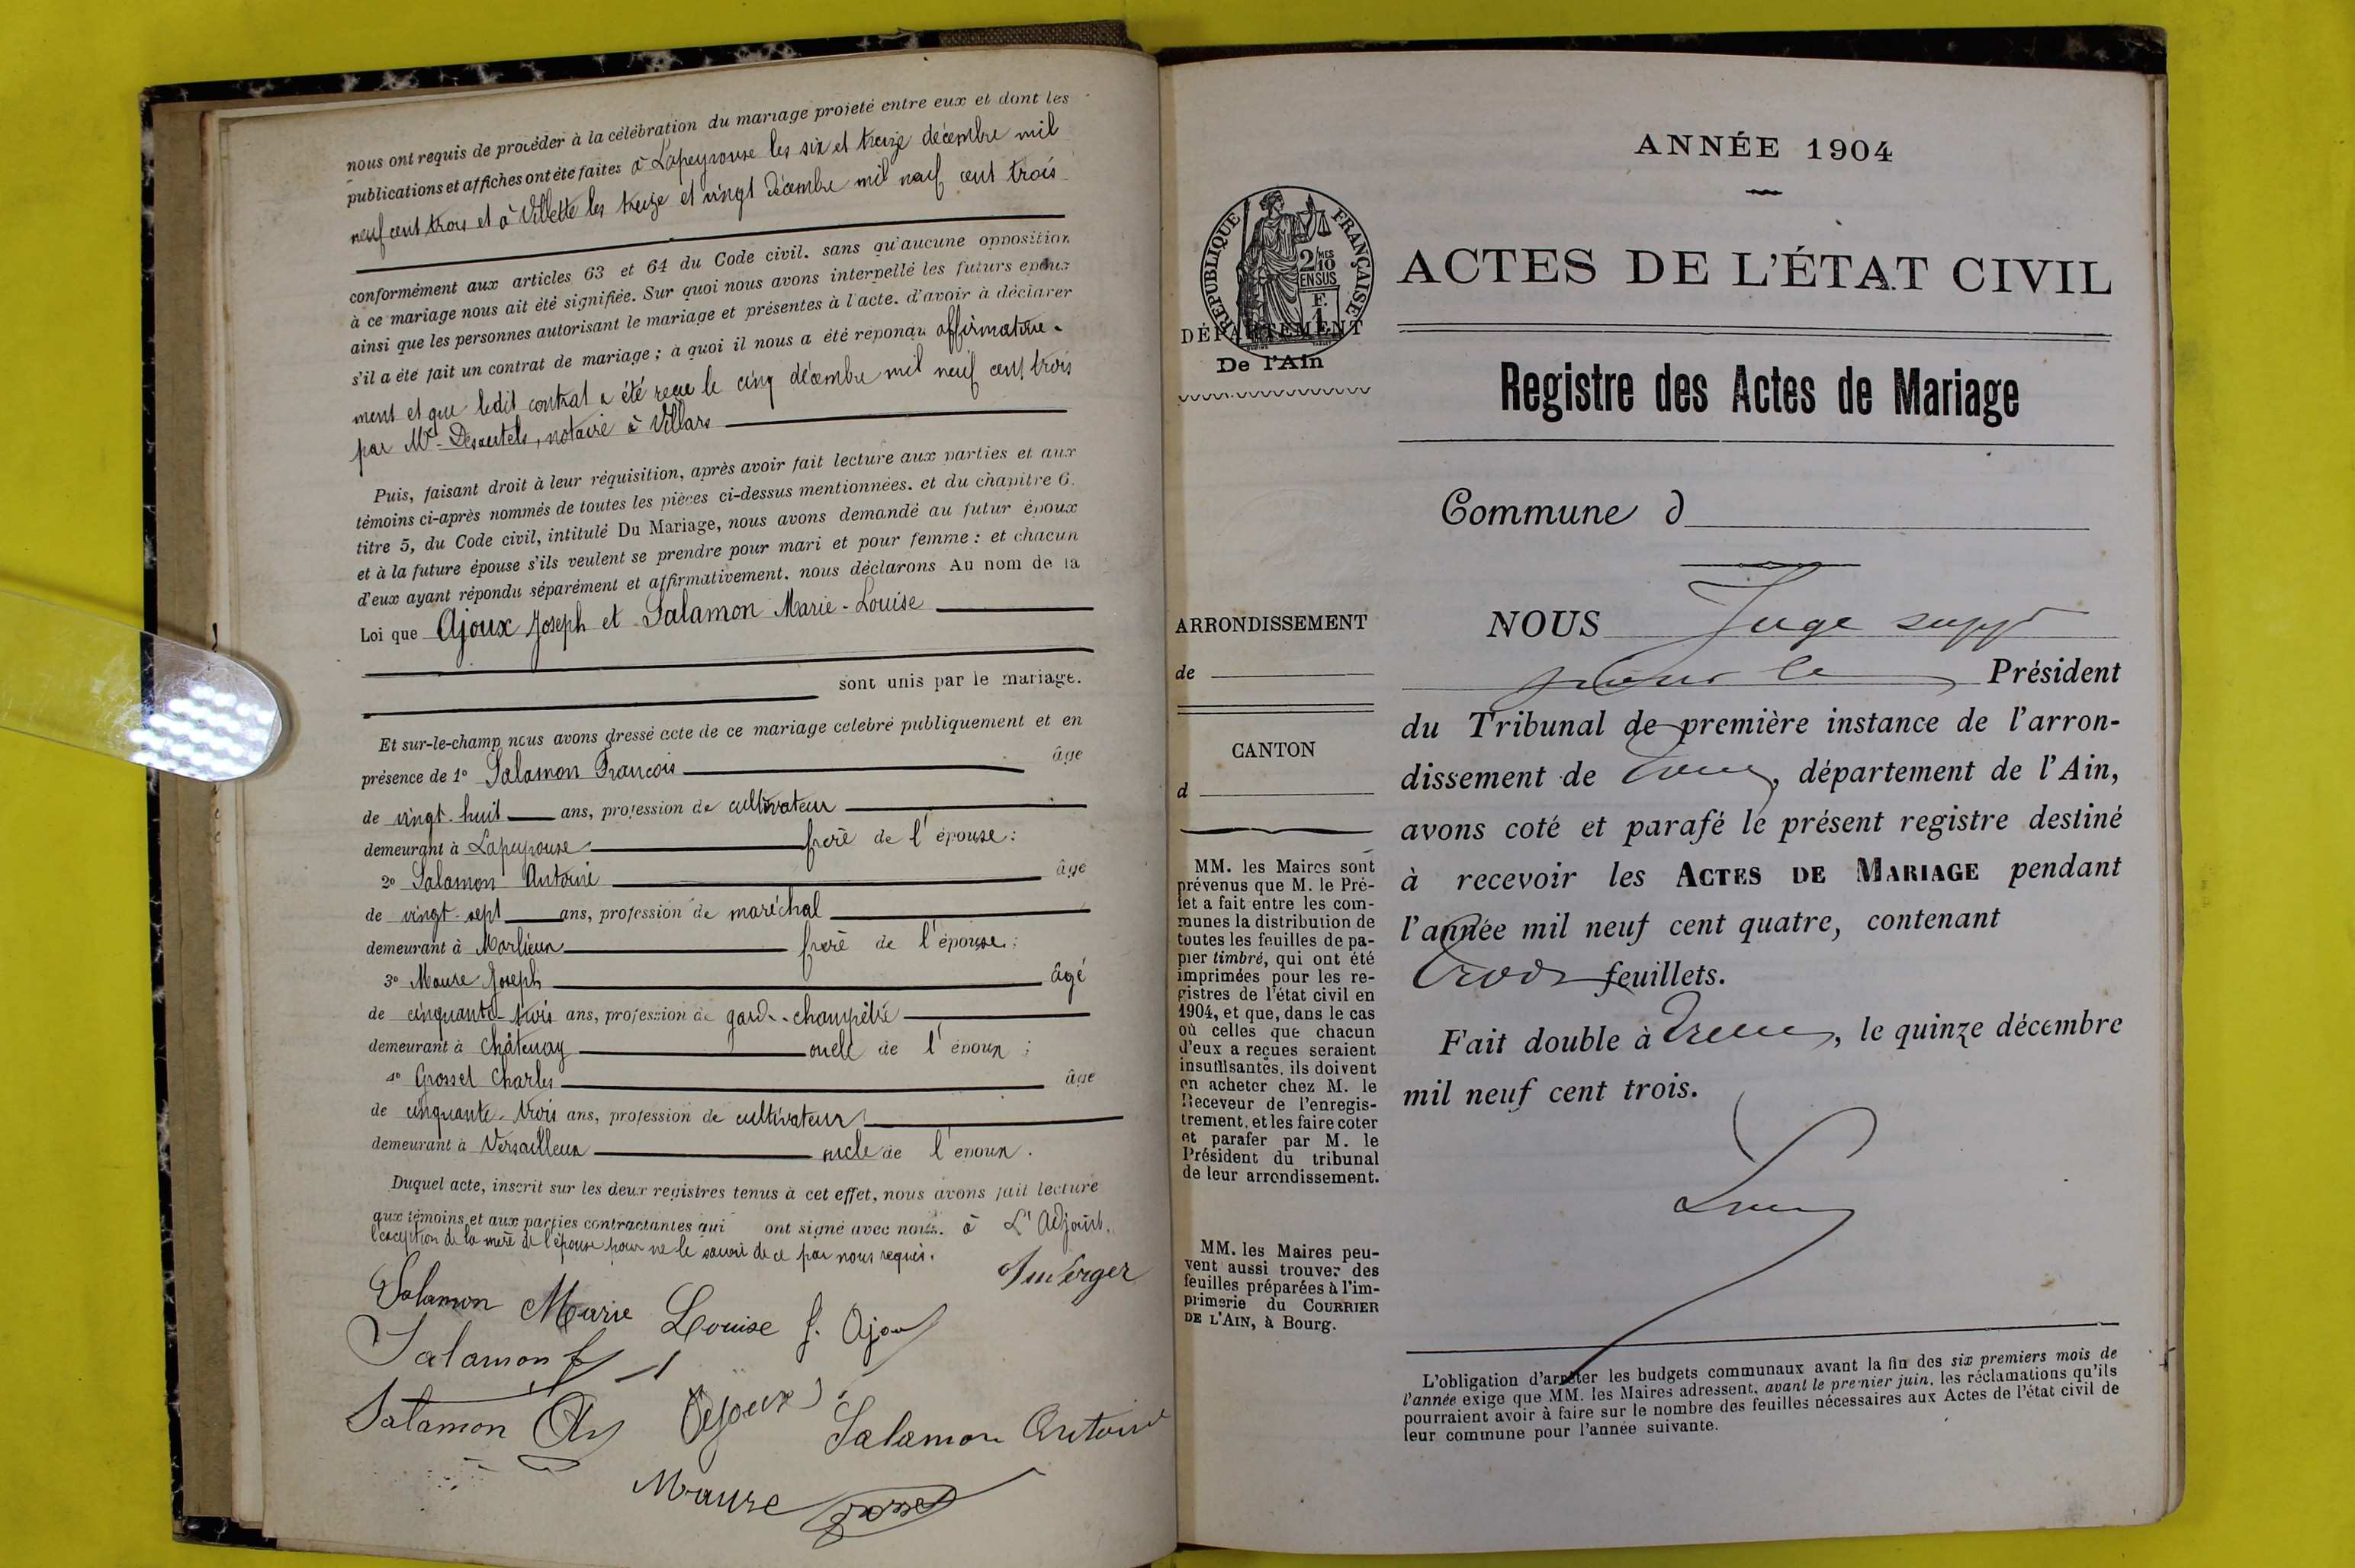 nous ont requis de procéder à la célébration du mariage projeté entre eux et dont les
publications et affiches ont été faites à Lapeyrouse les six et treize décembre mil
neuf cent trois et à Villette les treize et vingt décembre mil neuf cent trois
conformément aux articles 63 et 64 du Code civil. sans qu'aucune opposition
à ce mariage nous ait été signifiée. Sur quoi nous avons interpellé les futurs époux
ainsi que les personnes autorisant le mariage et présentes à l'acte. d'avoir à déclarer
s'il a été fait un contrat de mariage ; à quoi il nous a été répondu affirmative-
ment et que ledit contrat a été reçu le cinq décembre mil neuf cent trois
par Me Desautels, notaire à Villars
Puis, faisant droit à leur réquisition, après avoir fait lecture aux parties et aux
témoins ci-après nommés de toutes les pièces ci-dessus mentionnées. et du chapitre 6.
titre 5, du Code civil, intitulé Du Mariage, nous avons demandé au futur époux
et à la future épouse s'ils veulent se prendre pour mari et pour femme : et chacun
d'eux ayant répondu séparément et affirmativement. nous déclarons Au nom de la
Loi que Ajoux Joseph et Salamon Marie-Louise
sont unis par le mariage.
Et sur-le-champ nous avons dressé acte de ce mariage célébré publiquement et en
présence de 1o Salamon François âgé
de vingt-huit ans, profession de cultivateur
demeurant à Lapeyrouse frère de l'épouse :
2o Salamon Antoine âgé
de vingt-sept ans, profession de maréchal
demeurant à Marlieux frère de l'épouse :
3o Maure Joseph âgé
de cinquante-trois ans, profession de garde-champêtre
demeurant à Châtenay oncle de l'époux ;
4o Grosset Charles âgé
de cinquante-trois ans, profession de cultivateur
demeurant à Versailleux oncle de l'époux.
Duquel acte, inscrit sur les deux registres tenus à cet effet, nous avons fait lecture
aux témoins et aux parties contractantes qui ont signé avec nous. à L'Adjoint.
l'exception de la mère de l'épouse pour ne le savoir de ce par nous requis.
Salamon Marie Louise J. Ajoux
Salamon f
Salamon Ajoux J. Salamon Antoine
Maure Grosset
ANNÉE 1904
RÉPUBLIQUE FRANÇAISE
2/10MES
EN SUS
F.
1
DÉPARTEMENT
De l'Ain
ACTES DE L'ÉTAT CIVIL
Registre des Actes de Mariage
Commune d
NOUS Juge suppt
pour le Président
du Tribunal de première instance de l'arron-
dissement de Trévoux, département de l'Ain,
avons coté et parafé le présent registre destiné
à recevoir les ACTES DE MARIAGE pendant
l'année mil neuf cent quatre, contenant
Trois feuillets.
Fait double à Trévoux, le quinze décembre
mil neuf cent trois.
ARRONDISSEMENT
de
CANTON
d
MM. les Maires sont
prévenus que M. le Pré-
fet a fait entre les com-
munes la distribution de
toutes les feuilles de pa-
pier timbré, qui ont été
imprimées pour les re-
gistres de l'état civil en
1904, et que, dans le cas
où celles que chacun
d'eux a reçues seraient
insuffisantes, ils doivent
en acheter chez M. le
Receveur de l'enregis-
trement, et les faire coter
et parafer par M. le
Président du tribunal
de leur arrondissement.
MM. les Maires peu-
vent aussi trouver des
feuilles préparées à l'im-
primerie du COURRIER
DE L'AIN, à Bourg.
L'obligation d'arrêter les budgets communaux avant la fin des six premiers mois de
l'année exige que MM. les Maires adressent, avant le premier juin, les réclamations qu'ils
pourraient avoir à faire sur le nombre des feuilles nécessaires aux Actes de l'état civil de
leur commune pour l'année suivante.